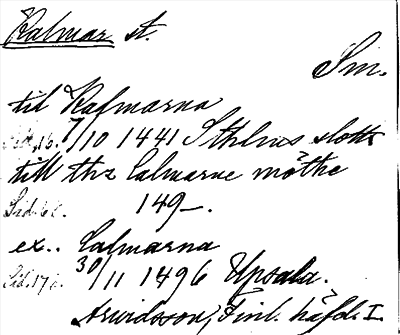 Kalmar st.
Sm.
til Kalmarna
Sid. 16. 7/10 1441 Sthlms slott
till thz Calmarne möthe
Sid. 62. 149-.
ex.. Calmarna
Sid. 170. 30/11 1496 Upsala.
Arwidsson, Finl. häfd. I.